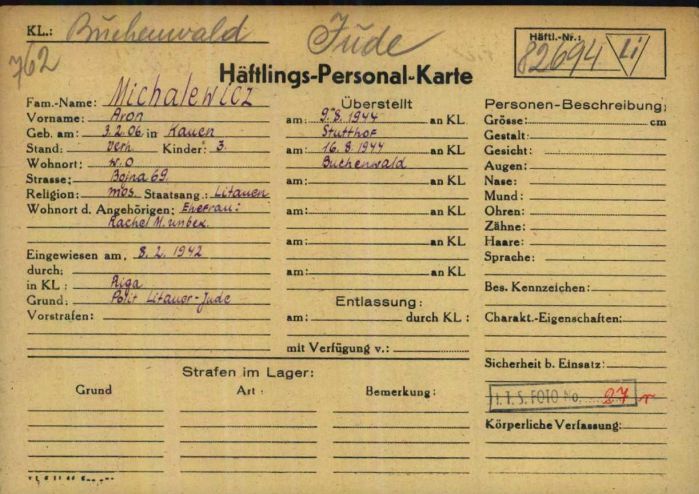 KL.: Buchenwald Jude Häftl.-Nr.: 82694 Li
762
Häftlings-Personal-Karte
Fam.-Name: Michalewicz
Vorname: Aron
Geb. am: 3.2.06. in Kauen
Stand: verh. Kinder: 3.
Wohnort: w.o
Strasse: Bojna 69.
Religion: mos. Staatsang.: Litauen
Wohnort d. Angehörigen: Ehefrau:
Rachel M. unbek.
Eingewiesen am: 8.2.1942
durch:
in KL: Riga
Grund: Polit Litauer-Jude
Vorstrafen:
Überstellt
am: 9.8.1944 an KL
Stutthof
am: 16.8.1944 an KL
Buchenwald
am: an KL
am: an KL
am: an KL
am: an KL
Entlassung:
am: durch KL:
mit Verfügung v.:
Personen-Beschreibung:
Grösse: cm
Gestalt:
Gesicht:
Augen:
Nase:
Mund:
Ohren:
Zähne:
Haare:
Sprache:
Bes. Kennzeichen:
Charakt.-Eigenschaften:
Sicherheit b. Einsatz:
I.T.S. FOTO No. 27
Körperliche Verfassung:
Strafen im Lager:
Grund Art: Bemerkung: